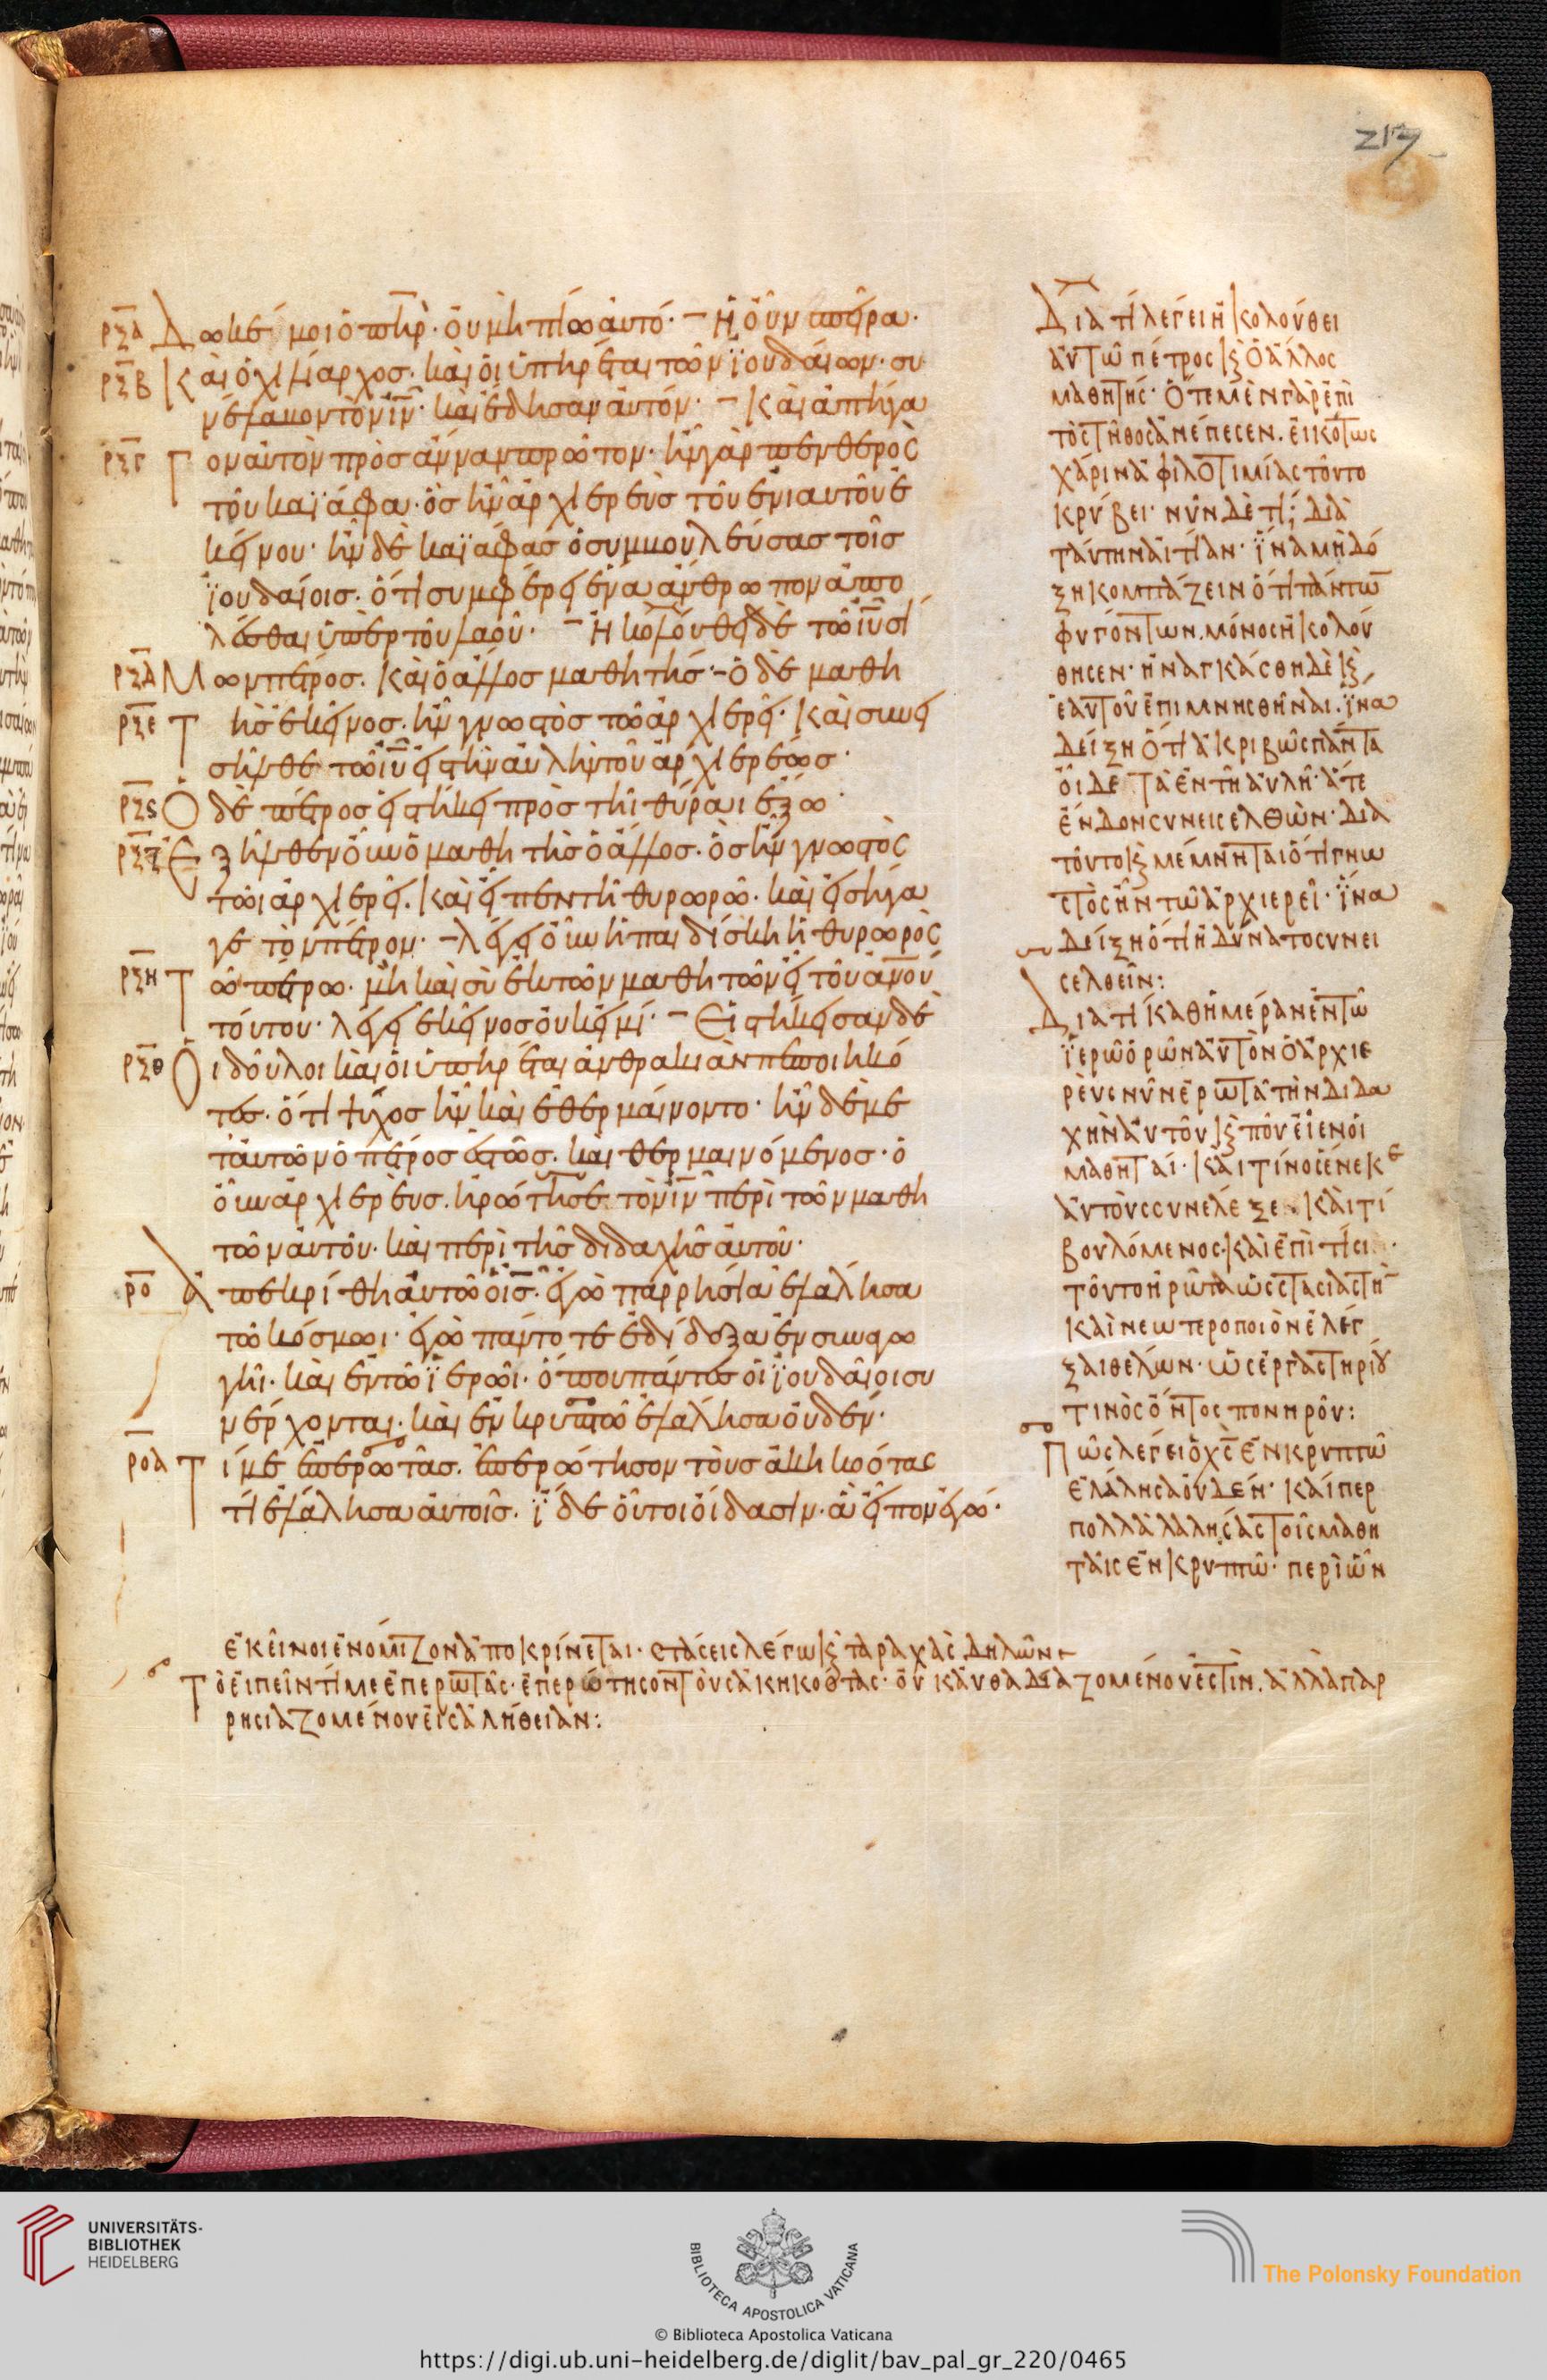 217
ρξα Δωκέ μοι ὁ πη̅ρ· οὐ μὴ πίω αὐτό· – Ἡ οὖν σπεῖρα·
ρξβ Καὶ ὁ χιλίαρχοσ· καὶ οἱ ὑπηρέται τῶν ϊουδαίων· συ
νέλαβον τὸν ι̅ν̅· καὶ έδησαν αὐτόν· – Καὶ ἀπήγα
ρξγ Τ ον αὐτὸν πρὸσ ἄνναν πρῶτον· ἦν γὰρ πενθερὸς
τοῦ καϊάφα· ὃσ ἦν ἀρχιερεὺσ τοῦ ἐνιαυτοῦ ἐ
κείνου· ἦν δὲ καϊάφασ ὁ συμβουλεύσασ τοῖσ
ϊουδαίοισ· ὅτι συμφέρει ἕνα ἄνθρωπον ἀπο
λέσθαι ὑπὲρ τοῦ λαοῦ· – Ἠκολούθει δὲ τῶ ι̅υ̅ σί
ρξδ Μ ων πέτροσ. Καὶ ὁ ἄλλοσ μαθητήσ·– ὁ δὲ μαθη
ρξε Τ ὴσ ἐκεῖνοσ· ἦν γνωστὸσ τῶ ἀρχιερεῖ· Καὶ συνει
σῆλθε τῶ ι̅υ̅ εἰς τὴν αὐλὴν τοῦ ἀρχιερέωσ·
ρξς Ὁ δὲ πέτροσ εἱστήκει πρὸσ τῆι θύραι ἔξω·
ρξζ Ε ξῆλθεν οὖν ὁ μαθητὴσ ὁ ἄλλοσ· ὃσ ἦν γνωστὸς
τῶι ἀρχιερεῖ. Καὶ εἶπεν τῆ θυρωρῶ· καὶ εἰσήγα
γε τὸν πέτρον· – λέγει οὖν ἡ παιδίσκη ἡ θυρωρὸς
ρξη Τ ῶ πέτρω· μὴ καὶ σὺ ἐκ τῶν μαθητῶν εἶ τοῦ α̅ν̅ο̅υ̅
τούτου· λέγει ἐκεῖνοσ οὐκ εἰμί· – Εἱστήκεισαν δὲ
ρξθ Ὁ ι δοῦλοι καὶ οἱ ὑπηρέται ἀνθρακιὰν πεποιηκό
τεσ· ὅτι ψῦχοσ ἦν καὶ ἐθερμαίνοντο· ἦν δὲ με
τ' αὐτῶν ὁ πέτροσ ἑστῶσ· καὶ θερμαινόμενοσ· ὁ
οὖν ἀρχιερεὺσ· ἠρώτησε τὸν ι̅ν̅ περὶ τῶν μαθη
τῶν αὐτοῦ· καὶ περὶ τῆσ διδαχῆσ αὐτοῦ·
ρο ἀ πεκρίθη αὐτῶ ὁ ι̅σ̅· ἐγὼ παρρησία ἐλάλησα
τῶ κόσμωι· ἐγὼ πάντοτε ἐδίδαξα ἐν συναγω
γῆι· καὶ ἐν τῶ ϊερῶι· ὅπου πάντεσ οἱ ϊουδαῖοι συ
νέρχονται· καὶ ἐν κρυπτῶ ἐλάλησα οὐδέν·
ροα Τ ί με ἐπερωτᾶσ· ἐπερώτησον τοὺσ ἀκηκοότας
τί ἐλάλησα αὐτοῖσ· ϊδε οὗτοι οἴδασιν· ἃ εἶπον ἐγώ·
Διατί λέγει ἠκολούθει
αὐτῶ πέτρος κ̀ ὁ ἄλλος
μαθητής· Ὅτε μὲν γὰρ ἐπὶ
τὸ στῆθος ἀνέπεσεν. εἰκότως
χάριν ἀφιλοτιμίας τοῦτο
κρύβει· νῦν δὲ τί; διὰ
ταύτην αἰτίαν· ἵνα μὴ δό
ξη κομπάζειν ὅτι πάντω̅
φυγόντων. μόνος ἠκολού
θησεν· ἠναγκάσθη δὲ κ̀
ἑαυτοῦ ἐπιμνησθῆναι. ἵνα
δείξη ὅτι ἀκριβῶς πάντα
οἶδε τὰ ἐν τῆ αὐλῆ· ἅτε
ἔνδον συνεισελθών· διὰ
τοῦτο κ̀ μέμνηται ὅτι γνω
στὸς ἦν τῶ ἀρχιερεῖ· ἵνα
δείξη ὅτι ἠδύνατο συνει
σελθεῖν:
Διατί καθημέραν ἐν τῶ
ϊερῶ ὁρῶν αὐτὸν ὁ ἀρχιε
ρεὺς νῦν ἐρωτᾶ τὴν διδα
χὴν αὐτοῦ κ̀ ποῦ εἶεν οἱ
μαθηταί· Καὶ τίνος ἕνεκε
αὐτοὺς συνέλεξε· Καὶ τί
βουλόμενος· καὶ ἐπὶ τίσι·
τοῦτο ἠρῶτα ὡς στασιαστὴ̅
καὶ νεωτεροποιὸν ἐλέγ
ξαι θέλων· ὡς ἐργαστηρίου
τινὸς ὄντος πονηροῦ:
Πῶς λέγει ὁ χ̅ς̅ ἐν κρυπτῶ
ἐλάλησα οὐδέν· καίπερ
πολλὰ λαλήσας τοῖς μαθη
ταῖς ἐν κρυπτῶ· περὶ ὧν
ἐκεῖνοι ἐνόμιζον ἀποκρίνεται· στάσεις λέγω κ̀ ταραχὰς δηλῶν
Τ ὸ εἰπεῖν τί με ἐπερωτᾶς· ἐπερώτησον τοὺς ἀκηκοότας· οὐκ αὐθαδιαζομένου ἐστίν. ἀλλὰ παρ
ρησιαζομένου εἰς ἀλήθειαν:
UNIVERSITÄTS-
BIBLIOTHEK
HEIDELBERG
BIBLIOTECA APOSTOLICA VATICANA
The Polonsky Foundation
© Biblioteca Apostolica Vaticana
https://digi.ub.uni-heidelberg.de/diglit/bav_pal_gr_220/0465